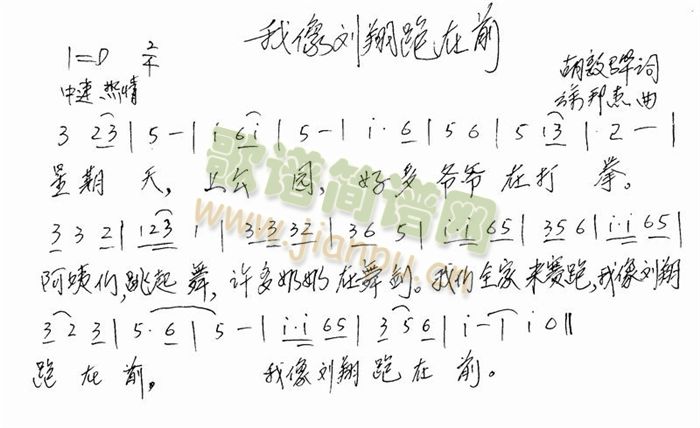 我像刘翔跑在前
1=D 2/4
中速 热情
胡敦骅词
邦杰曲
3 23 | 5 - | i 6i | 5 - | i · 6 | 5 6 | 5 i3 | · 2 - |
星期天，上公园，好多爷爷在打拳。
3 3 2 | 123 1 | 33 32 | 36 5 | i·i 65 | 35 6 | i·i 65 |
阿姨们，跳起舞，许多奶奶在舞剑。我们全家来赛跑，我像刘翔
3 2 3 | 5 · 6 | 5 - | i·i 65 | 3 5 6 | i - | i 0 ‖
跑在前。我像刘翔跑在前。
歌谱简谱网
www.jianpu.cn